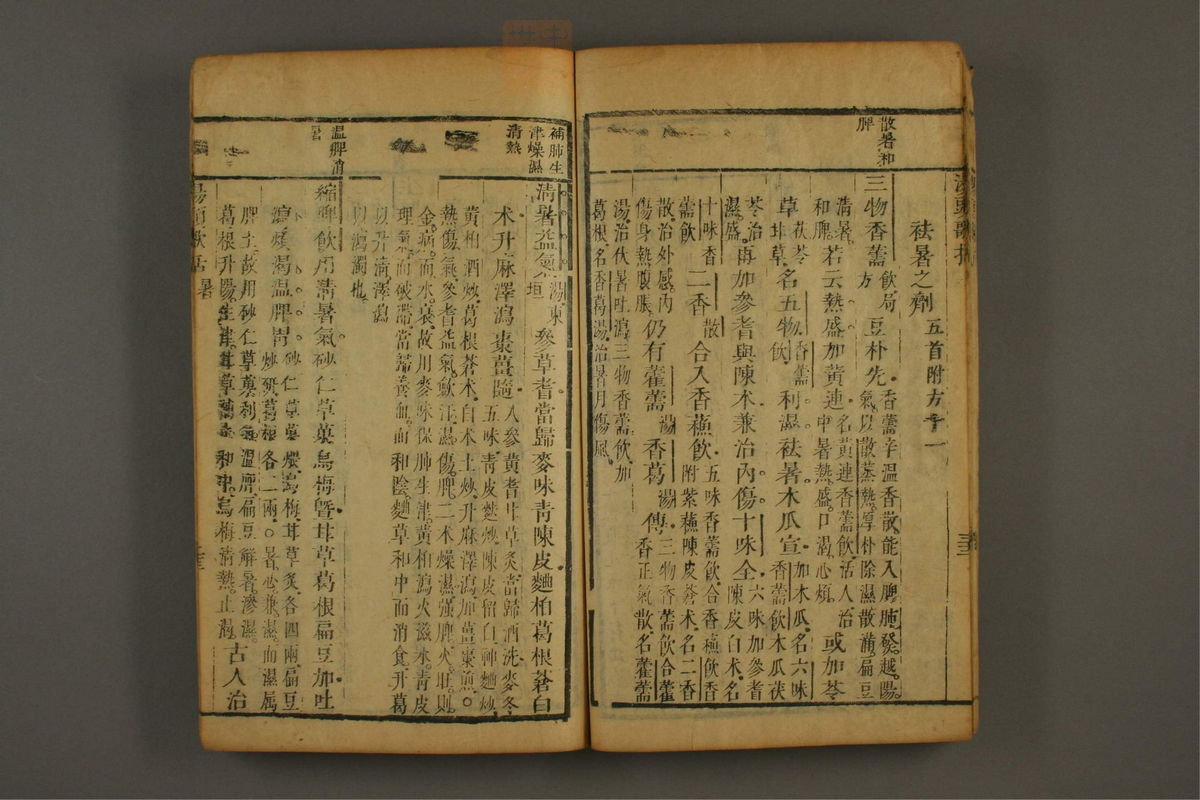 湯頭歌括
祛暑之劑五首附方十一
散暑和
脾
三物香薷飲局方豆朴先香薷辛溫香散能入脾肺發越陽
氣以散蒸熱厚朴除濕散滿扁豆
清暑和脾若云熱盛加黃連名黃連香薷飲活人治
中暑熱盛口渴心煩或加苓
草茯苓甘草名五物香薷飲利濕祛暑木瓜宣加木瓜名六味
香薷飲木瓜茯
苓治濕盛再加參耆與陳朮兼治內傷十味全六味加參耆
陳皮白朮名
十味香薷飲二香散合入香蘇飲五味香薷飲合香蘇飲香
附紫蘇陳皮蒼朮名二香
散治外感內
傷身熱腹脹仍有藿薷湯香葛湯傳三物香薷飲合藿
香正氣散名藿薷
湯治伏暑吐瀉三物香薷飲加
葛根名香葛湯治暑月傷風
三
補肺生
津燥濕
清熱
清暑益氣湯東垣參草耆當歸麥味青陳皮麯柏葛根蒼白
朮升麻澤瀉棗薑隨人參黃耆甘草炙當歸酒洗麥冬
五味青皮麩炒陳皮留白神麯炒
黃柏酒炒葛根蒼朮白朮土炒升麻澤瀉加薑棗煎
熱傷氣參耆益氣歛汗濕傷脾二朮燥濕強脾火旺則
金病而水衰故用麥味保肺生津黃柏瀉火滋水青皮
理氣而破滯當歸養血而和陰麯草和中而消食升葛
以升清澤瀉
以瀉濁也
溫脾消
暑
縮脾飲用清暑氣砂仁草菓烏梅暨甘草葛根扁豆加吐
瀉煩渴溫脾胃砂仁草菓煨烏梅甘草炙各四兩扁豆
炒研葛根各二兩○暑必兼濕而濕屬
脾土故用砂仁草菓利氣溫脾扁豆解暑滲濕
葛根升陽生津甘草和中烏梅清熱止渴古人治
湯頭歌括 暑